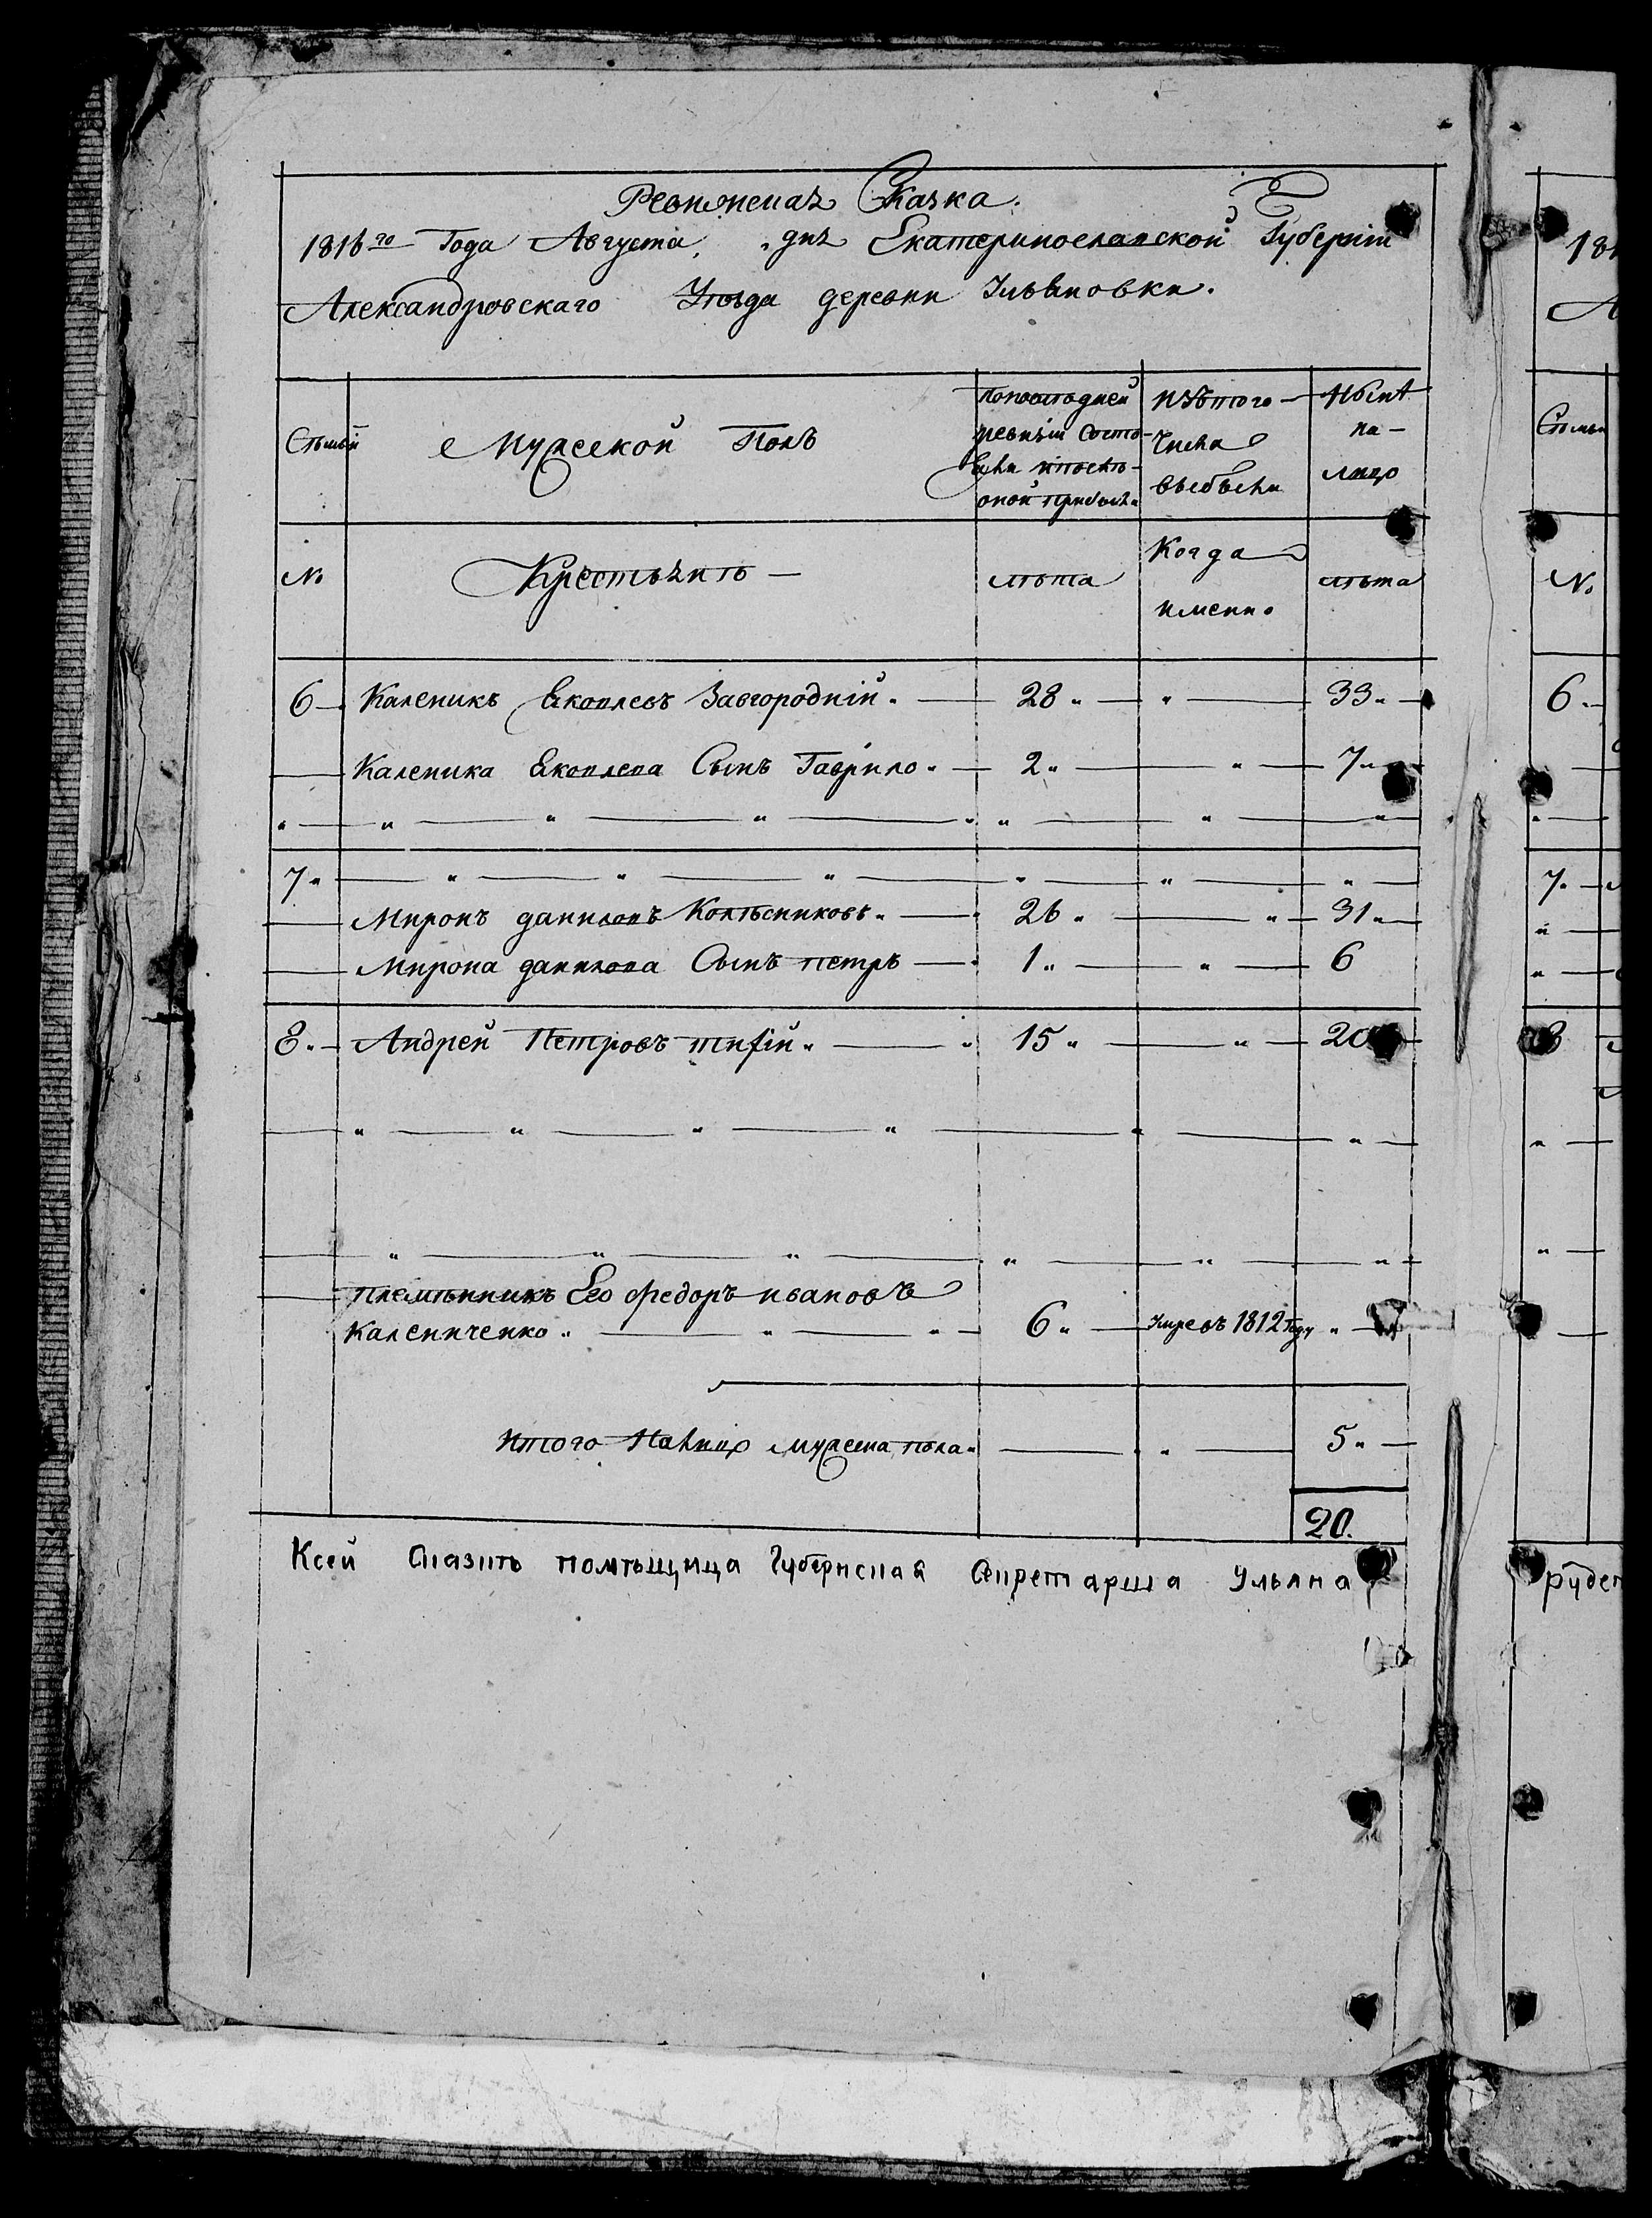 Ревижская Сказка.
1816го Года Августа, " дня Екатеринославской Губернiи
Александровскаго Уезда деревни Ульяновки.
Семьи
Мужеской Полъ
попоследней ревизiи Состояли ипосле оной прибыли
изътого Числа выбыли
Ныне на лицо
№
Крестьяне —
лета
Когда имянно
лета
6 — Каленикъ Яковлевъ Завгороднiй " — 28 " — " — 33 " —
— Каленика Яковлева Сынъ Гаврило " — 2 " — " — 7 " —
" — " — " — " — " " — " — "
7 " — " — " — " — " — " — " —
— Миронъ даниловъ Колесниковъ " — 26 " — " — 31 " —
— Мирона данилова Сынъ петръ — 1 " — " — 6
8 " — Андрей Петровъ тихiй " — " 15 " — " — 20
— " — " — " — " — " — " —
— " — " — " — " — " — " "
— племянникъ Его федоръ ивановъ
Калениченко " — " — " — 6 " — Умре въ 1812 Году " —
Итого Налицо мужеска пола " — " — 5 " —
20.
Ксей Сказке помещица Губернская Секретарша Ульяна
181
А
Семьи
№
6 " —
" —
7 " —
" —
" —
8
" —
" —
руден